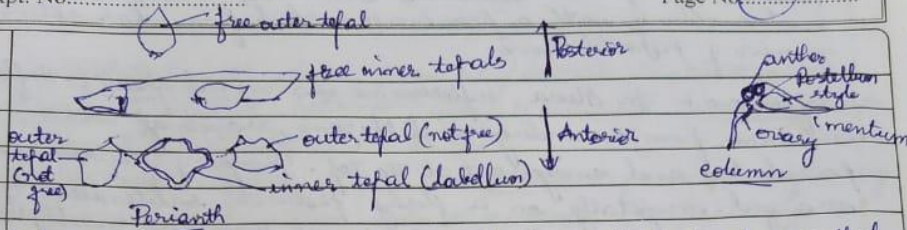 Page No.
free outer tepal
Posterior
free inner tepals
anther
Rostellum
style
outer tepal (not free)
outer tepal (not free)
Anterior
ovary
mentum
inner tepal (labellum)
column
Perianth